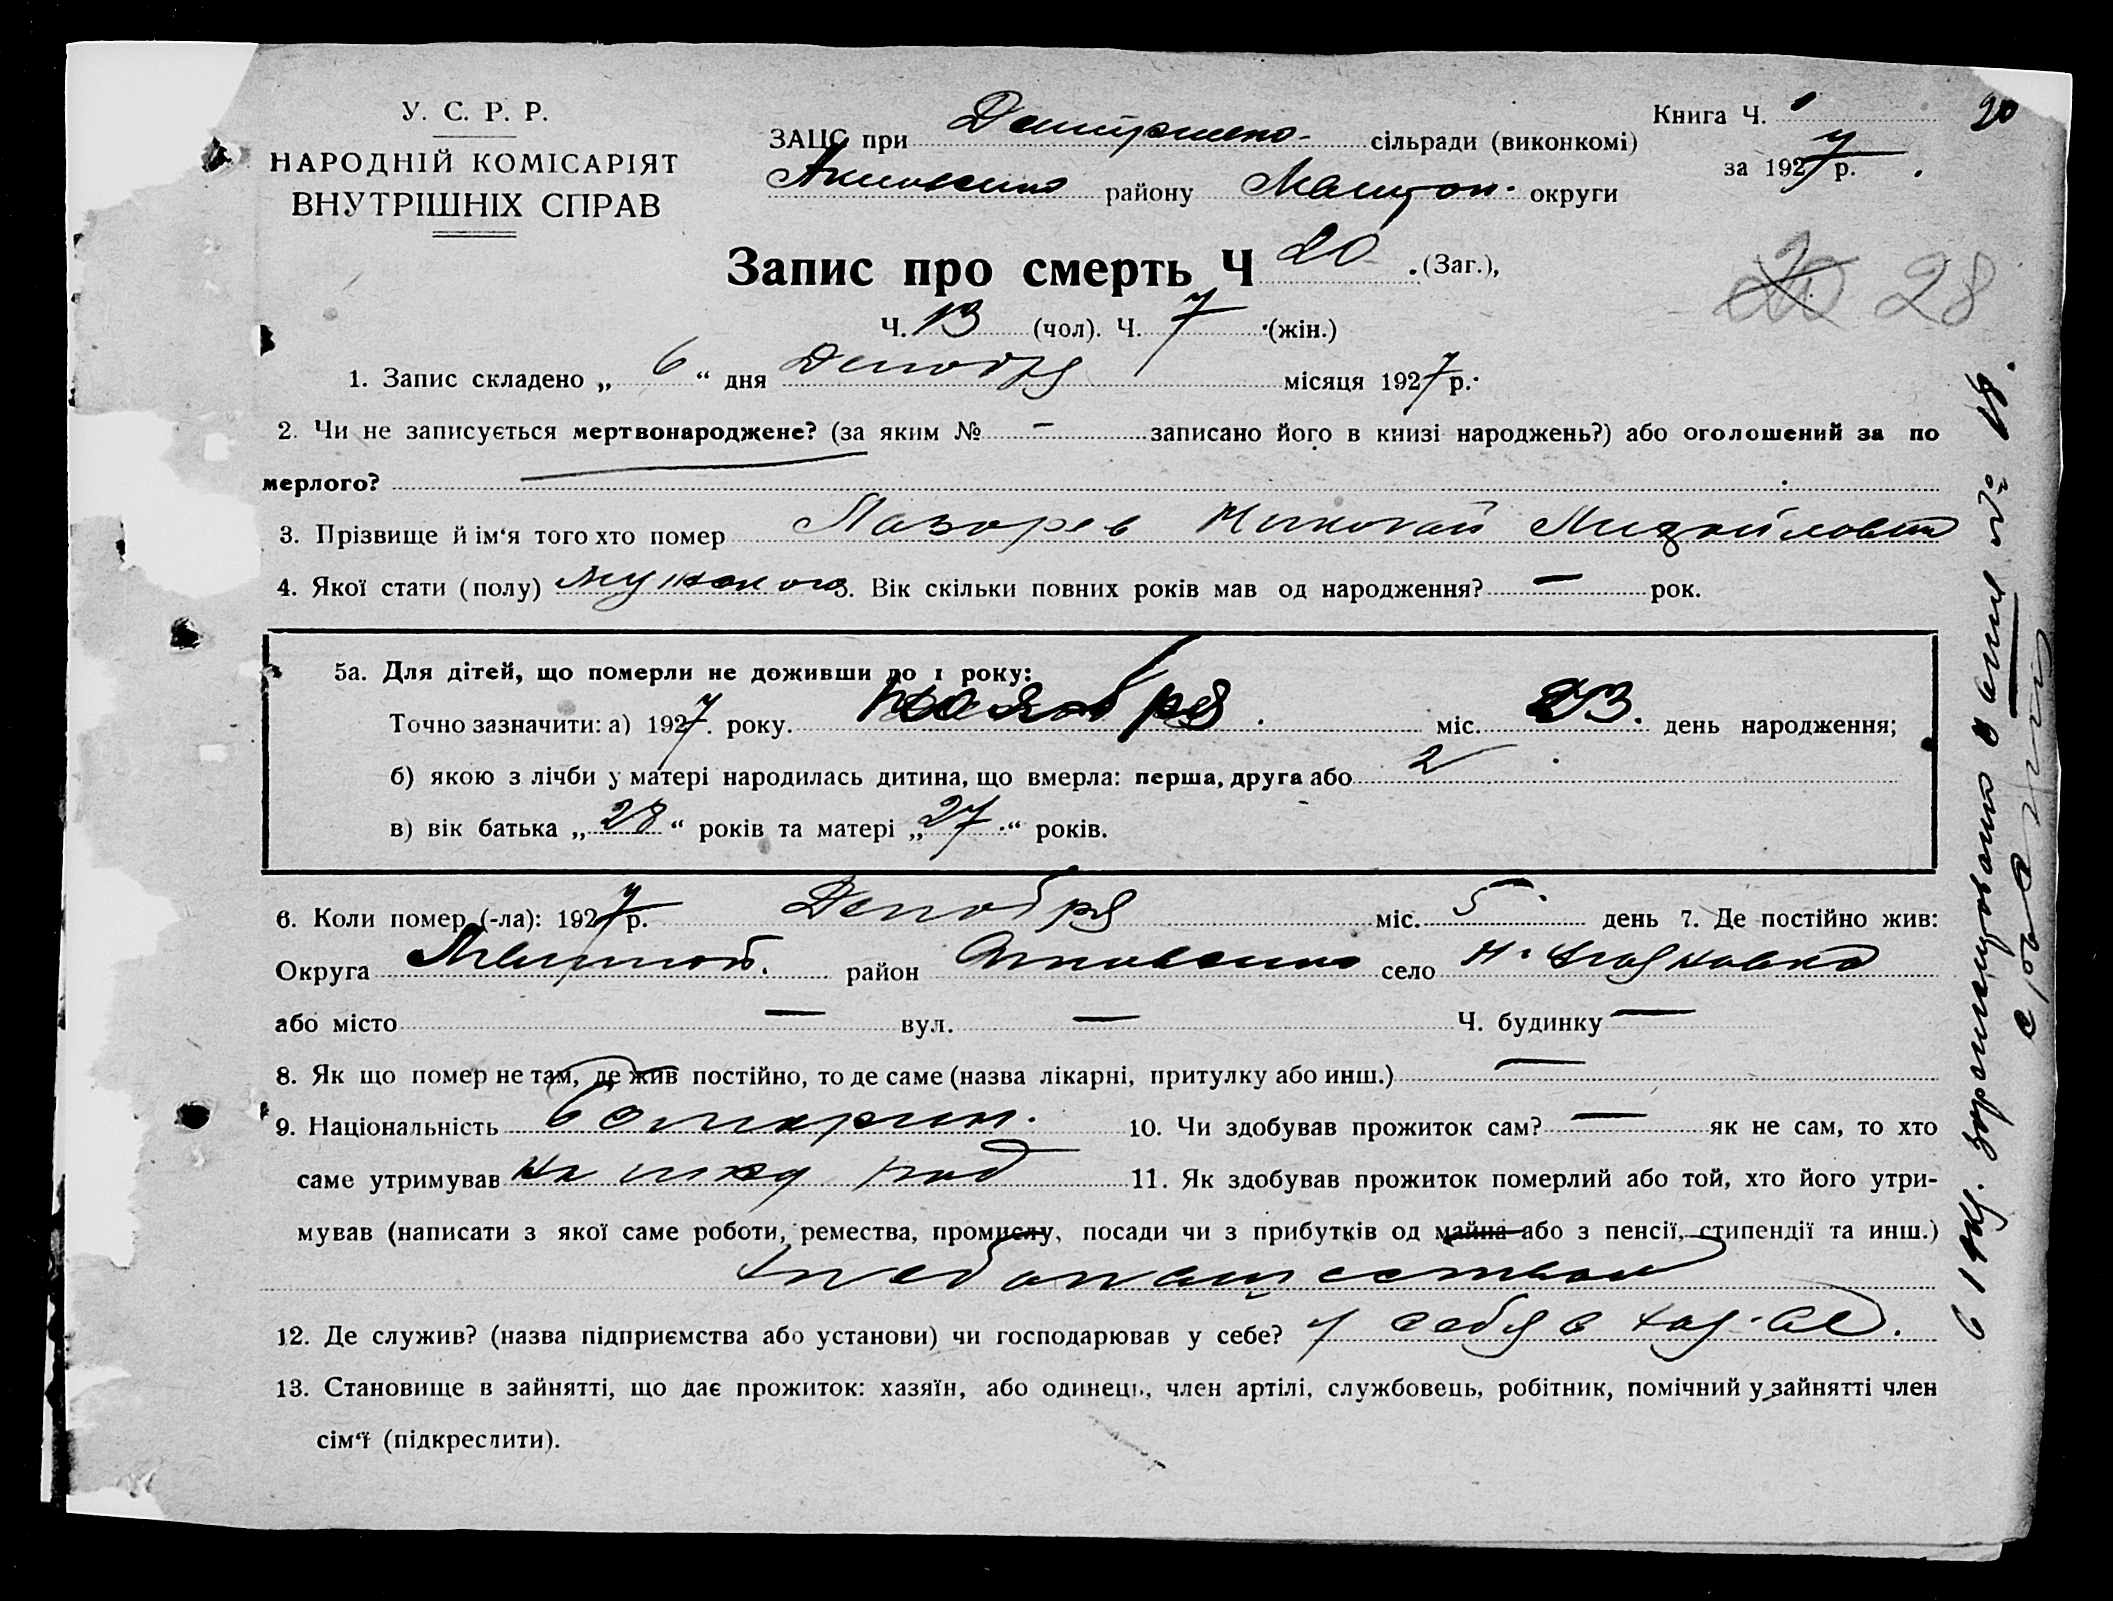 У. С. Р. Р.
НАРОДНІЙ КОМІСАРІЯТ
ВНУТРІШНІХ СПРАВ
Книга Ч. 1
20
ЗАЦС при сільради (виконкомі)
за 1927 р.
району округи
Запис про смерть Ч 20 (Заг.),
20 28
Ч. 13 (чол). Ч. 7 (жін.)
1. Запис складено „ 6 “ дня Декабря місяця 1927 р.
2. Чи не записується мертвонароджене? (за яким № — записано його в книзі народжень?) або оголошений за по
мерлого?
3. Прізвище й ім‘я того хто помер Лазарев Николай Михайлович
4. Якої стати (полу) мужского. Вік скільки повних років мав од народження? — рок.
5а. Для дітей, що померли не доживши до 1 року:
Точно зазначити: а) 1927. року. ноября міс. 23. день народження;
б) якою з лічби у матері народилась дитина, що вмерла: перша, друга або 2
в) вік батька „ 28 “ років та матері „ 27 “ років.
6. Коли помер (-ла): 1927 р. Декабря міс. 5 день 7. Де постійно жив:
Округа район село
або місто — вул. — Ч. будинку —
8. Як що помер не там, де жив постійно, то де саме (назва лікарні, притулку або инш.) —
9. Національність болгарин. 10. Чи здобував прожиток сам? — як не сам, то хто
саме утримував 11. Як здобував прожиток померлий або той, хто його утри-
мував (написати з якої саме роботи, ремества, промислу, посади чи з прибутків од майна або з пенсії, стипендії та инш.)
хлебопашеством
12. Де служив? (назва підприємства або установи) чи господарював у себе? у себя в
13. Становище в зайнятті, що дає прожиток: хазяїн, або одинець, член артілі, службовець, робітник, помічний у зайнятті член
сім‘ї (підкреслити).